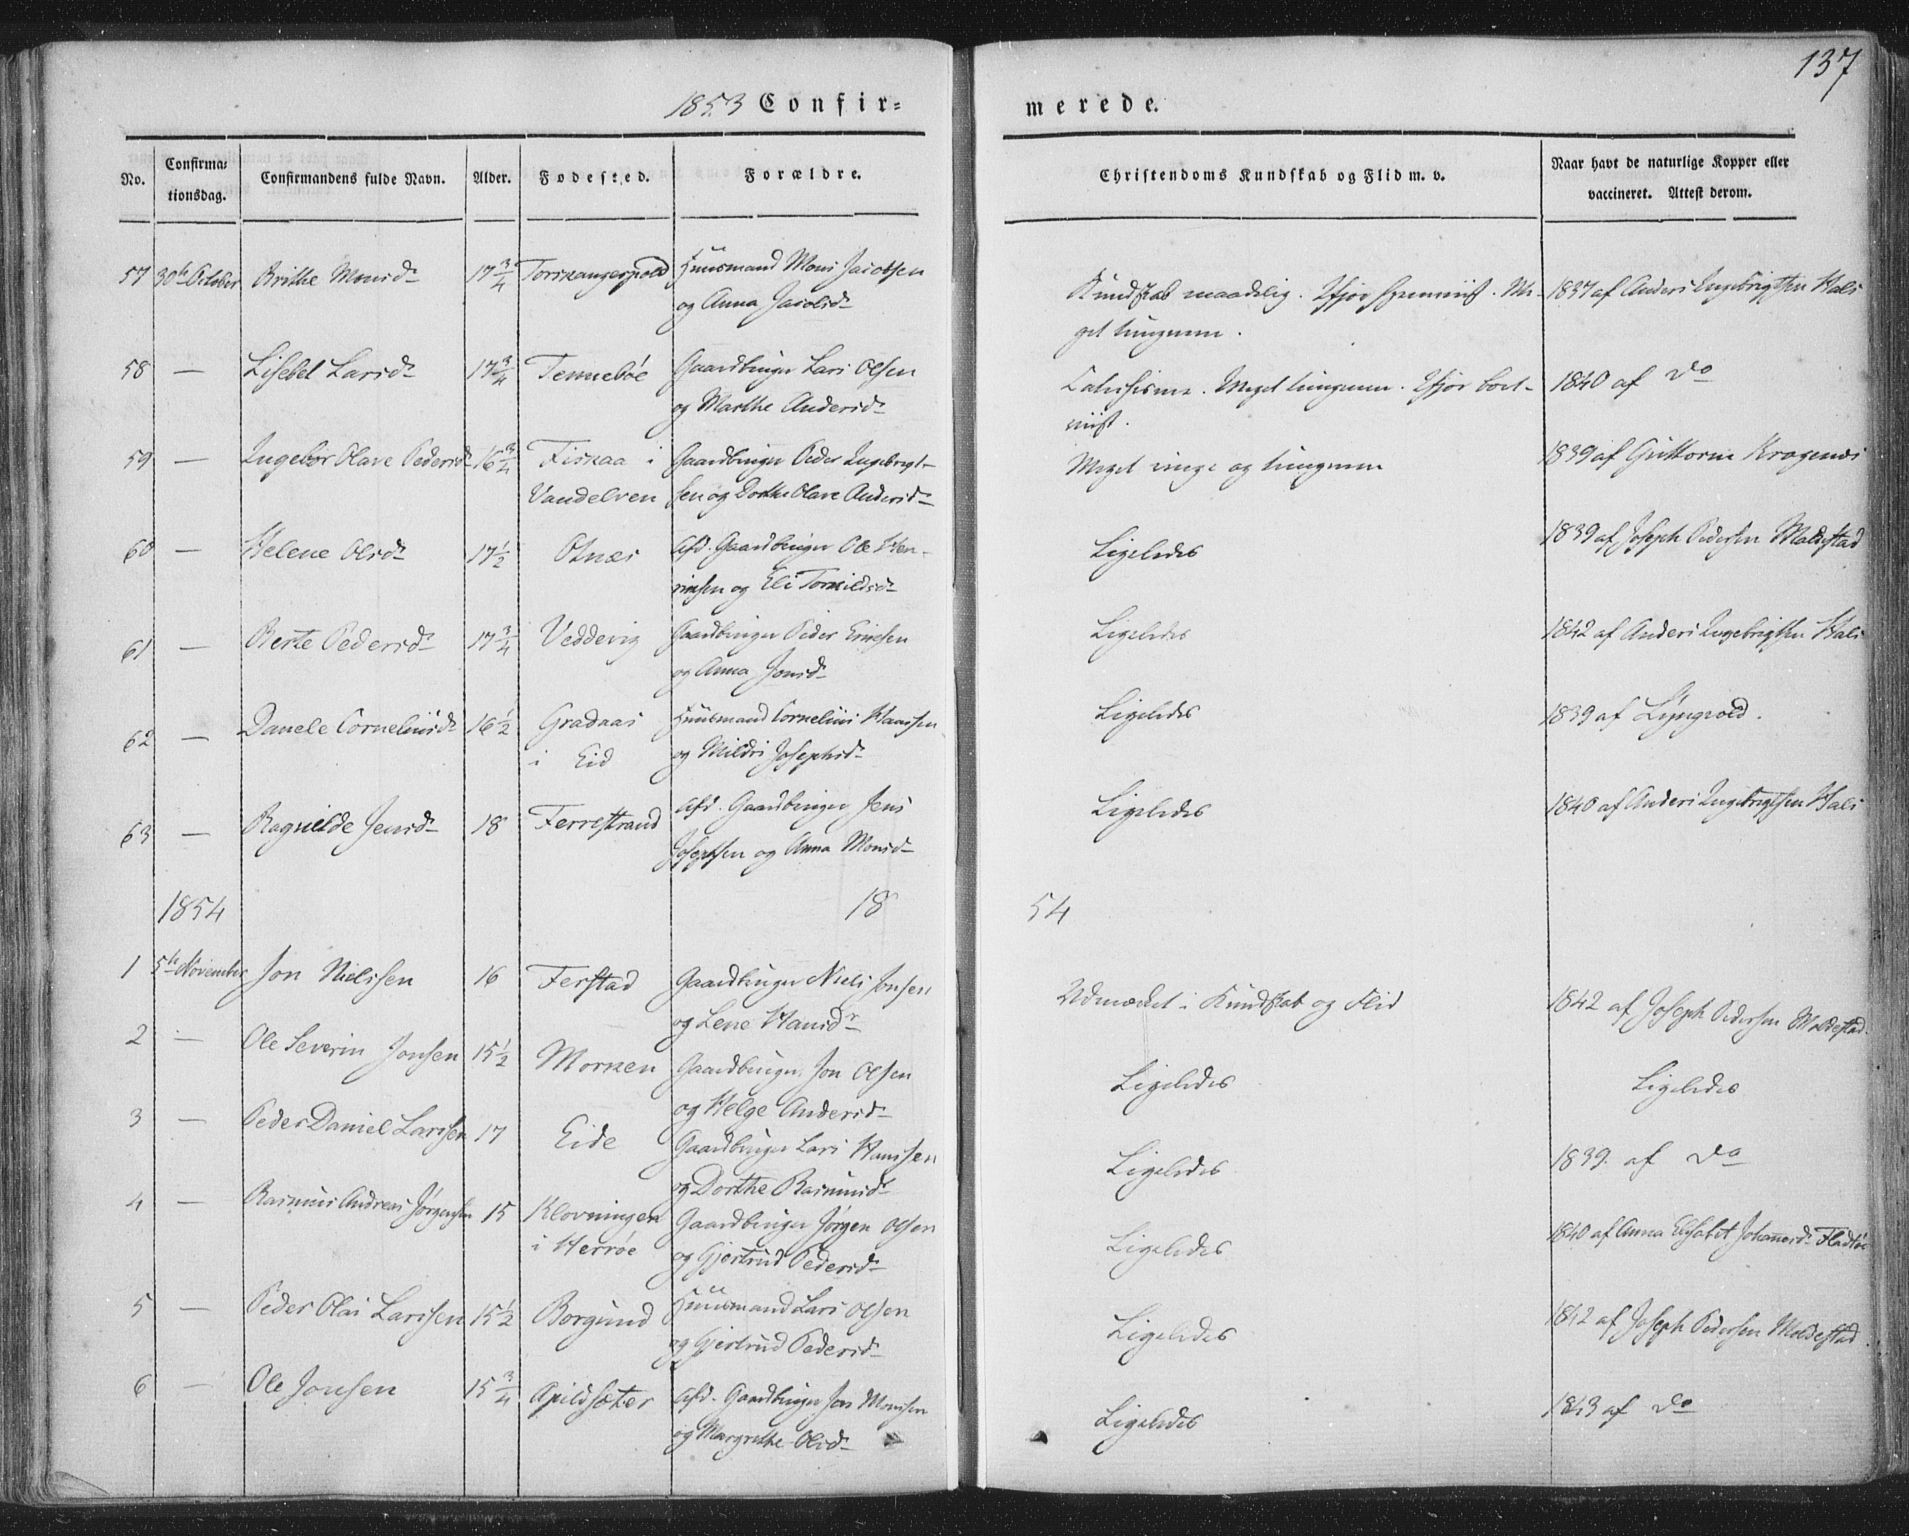 137
1853 Confir=
merede.
No.
Confirma=
tionsdag.
Confirmandens fulde Navn.
Alder.
Fødested.
Forældre.
Christendoms Kundskab og Flid m. v.
Naar havt de naturlige Kopper eller
vaccineret. Attest derom.
57 30te October Brithe Monsdr 17 3/4 Torskangerpold Huusmand Mons Jacobsen
og Anna Jacobsdr
Kundskab maadelig. Ifjor hjemviist. Me-
get tungnem.
1837 af Anders Ingebrigtsen Hals
58 — Lisebet Larsdr 17 3/4 Tennebøe Gaardbruger Lars Olsen
og Marthe Andersdr
Catechisme. Meget tungnem. Ifjor bort-
viist.
1840 af do
59 — Ingebor Olave Pedersdr 16 3/4 Fiskaa i
Vandelven
Gaardbruger Peder Ingebrigt-
sen og Dorthe Olave Andersdr
Meget ringe og tungnem
1839 af Guttorm Kragenæs
60 — Helene Olsdr 17 1/2 Otnæs Afd. Gaardbruger Ole Hen-
riksen og Eli Torkildsdr
Ligeledes
1839 af Joseph Pedersen Moldestad
61 — Berte Pedersdr 17 3/4 Veddevig Gaardbruger Peder Ericksen
og Anna Jonsdr
Ligeledes
1842 af Anders Ingebrigtsen Hals
62 — Danele Corneliusdr 16 1/2 Gradaas
i Eid
Huusmand Cornelius Hanssen
og Mildri Josephsdr
Ligeledes
1839 af Lyngvold.
63 — Ragnilde Jensdr 18 Ferrestrand Afd. Gaardbruger Jens
Josephsen og Anna Monsdr
Ligeledes
1840 af Anders Ingebrigtsen Hals
1854
18 54
1 5te November Jon Nielssen 16 Ferstad Gaardbruger Niels Jonsen
og Lene Hansdr
Udmærket i Kundskab og Flid
1842 af Joseph Pedersen Moldestad.
2 — Ole Severin Jonsen 15 1/2 Morken Gaardbruger Jon Olsen
og Helge Andersdr
Ligeledes
Ligeledes
3 — Peder Daniel Larssen 17 Eide Gaardbruger Lars Hanssen
og Dorthe Rasmusdr
Ligeledes
1839. af do
4 — Rasmus Andreas Jørgensen 15 Klovningen
i Herrøe
Gaardbruger Jørgen Olsen
og Gjertrud Pedersdr
Ligeledes
1840 af Anna Elisabet Johannesdr Fladøe
5 — Peder Olai Larssen 15 1/2 Borgund Huusmand Lars Olsen
og Gjertrud Pedersdr
Ligeledes
1842 af Joseph Pedersen Moldestad.
6 — Ole Jonsen 15 3/4 Apildsæter Afd. Gaardbruger Jon Monsen
og Margrethe Olsdr
Ligeledes
1843 af do